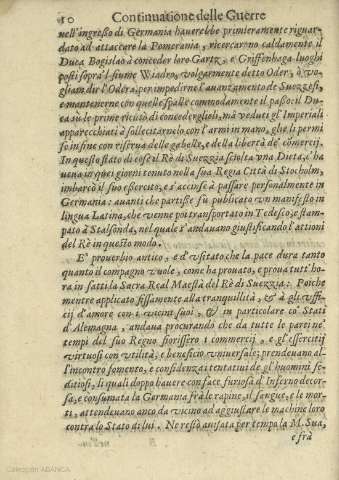 10 Continuatione delle Guerre
nell'ingresso di Germania hauerebbe primieramente riguar-
dato ad attaccare la Pomerania, ricercarono caldamente il
Duca Bogislao à conceder loro Gartz, e Griffenhaga luoghi
posti sopra'l fiume Wiadro, volgarmente detto Oder, ò vo-
gliam dir l'Odera, per impedirne l'auanzamento de Suezzesi,
e mantenerne con quelle spalle commodamente il passo: il Du-
ca sù le prime ricusò di concederglieli, mà veduti gl'Imperiali
apparecchiati à sollecitarnelo con l'armi in mano, glie li permi
se in fine con riserua delle gabelle, e della libertà de' cõmercij.
In questo stato di cose il Rè di Suezzia sciolta vna Dieta, c'ha
ueua in quei giorni tenuto nella sua Regia Città di Stocholm,
imbarcò il suo essercito, e s'accinse à passare personalmente in
Germania: auanti che partisse fù publicato vn manifesto in
lingua Latina, che venne poi transportato in Tedesco, e stam-
pato à Stralsonda, nel quale s'andauano giustificando l'attioni
del Rè in questo modo.
E' prouerbio antico, e d'vsitato che la pace dura tanto
quanto il compagno vuole, come ha prouato, e proua tutt'ho-
ra in fatti la Sacra Real Maestà del Rè di Suezzia: Poiche
mentre applicato fissamente alla tranquillità, & à gli vffi-
cij d'amore con i vicini suoi, & in particolare co' Stati
d'Alemagna, andaua procurando che da tutte le parti ne'
tempi del suo Regno fiorissero i commercij, e gl'essercitij
virtuosi con vtilità, e beneficio vniuersale; prendeuano al-
l'incontro fomento, e confidenza i tentatiui de gl'huomini se-
ditiosi, li quali doppo hauere con face furiosa d'Inferno decor-
sa, e consumata la Germania frà le rapine, il sangue, e le mor-
ti, attendeuano anco da vicino ad aggiustare le machine loro
contro lo Stato di lui. Ne restò auisata per tempo la M. Sua,
e frà
Colección ABANCA